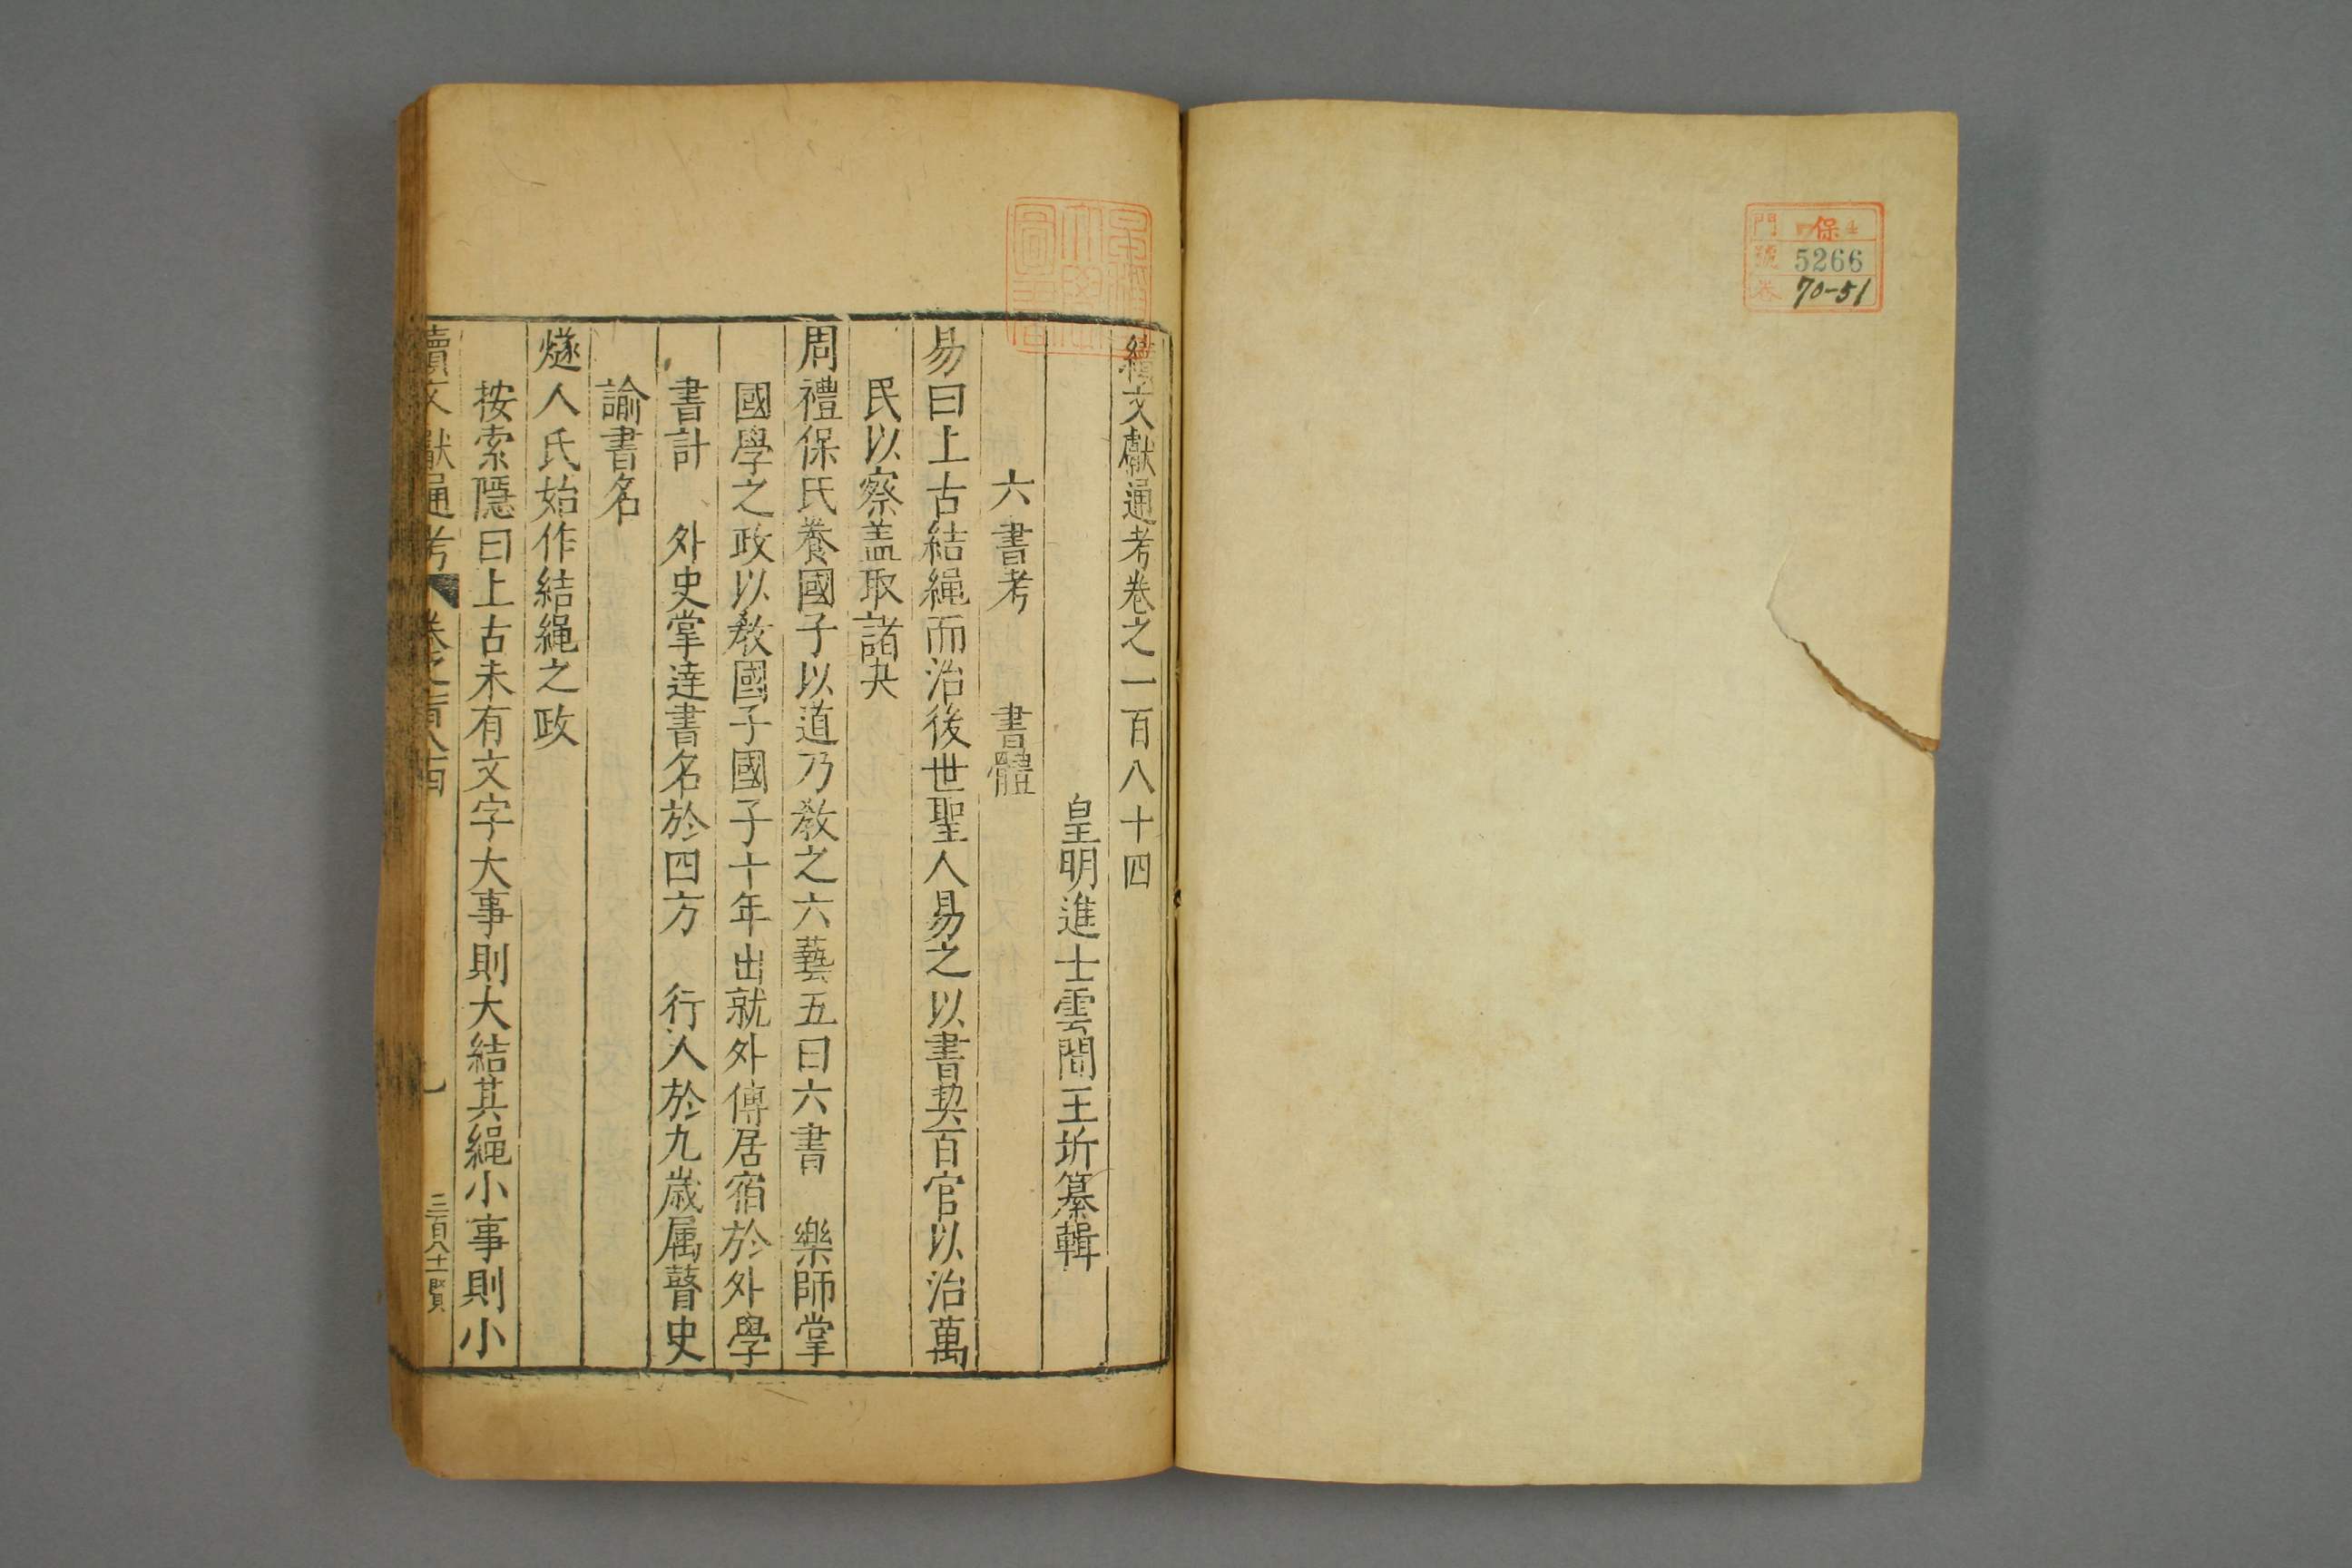 門 保
號 5266
卷 70-51
續文獻通考卷之一百八十四
皇明進士雲間王圻纂輯
六書考 書體
易曰上古結繩而治後世聖人易之以書契百官以治萬
民以察盖取諸夬
周禮保氏養國子以道乃教之六藝五曰六書 樂師掌
國學之政以教國子國子十年出就外傅居宿於外學
書計 外史掌達書名於四方 行人於九歲属瞽史
諭書名
燧人氏始作結繩之政
按索隱曰上古未有文字大事則大結其繩小事則小
續文獻通考 卷之一百八十四 三百八十一 賢